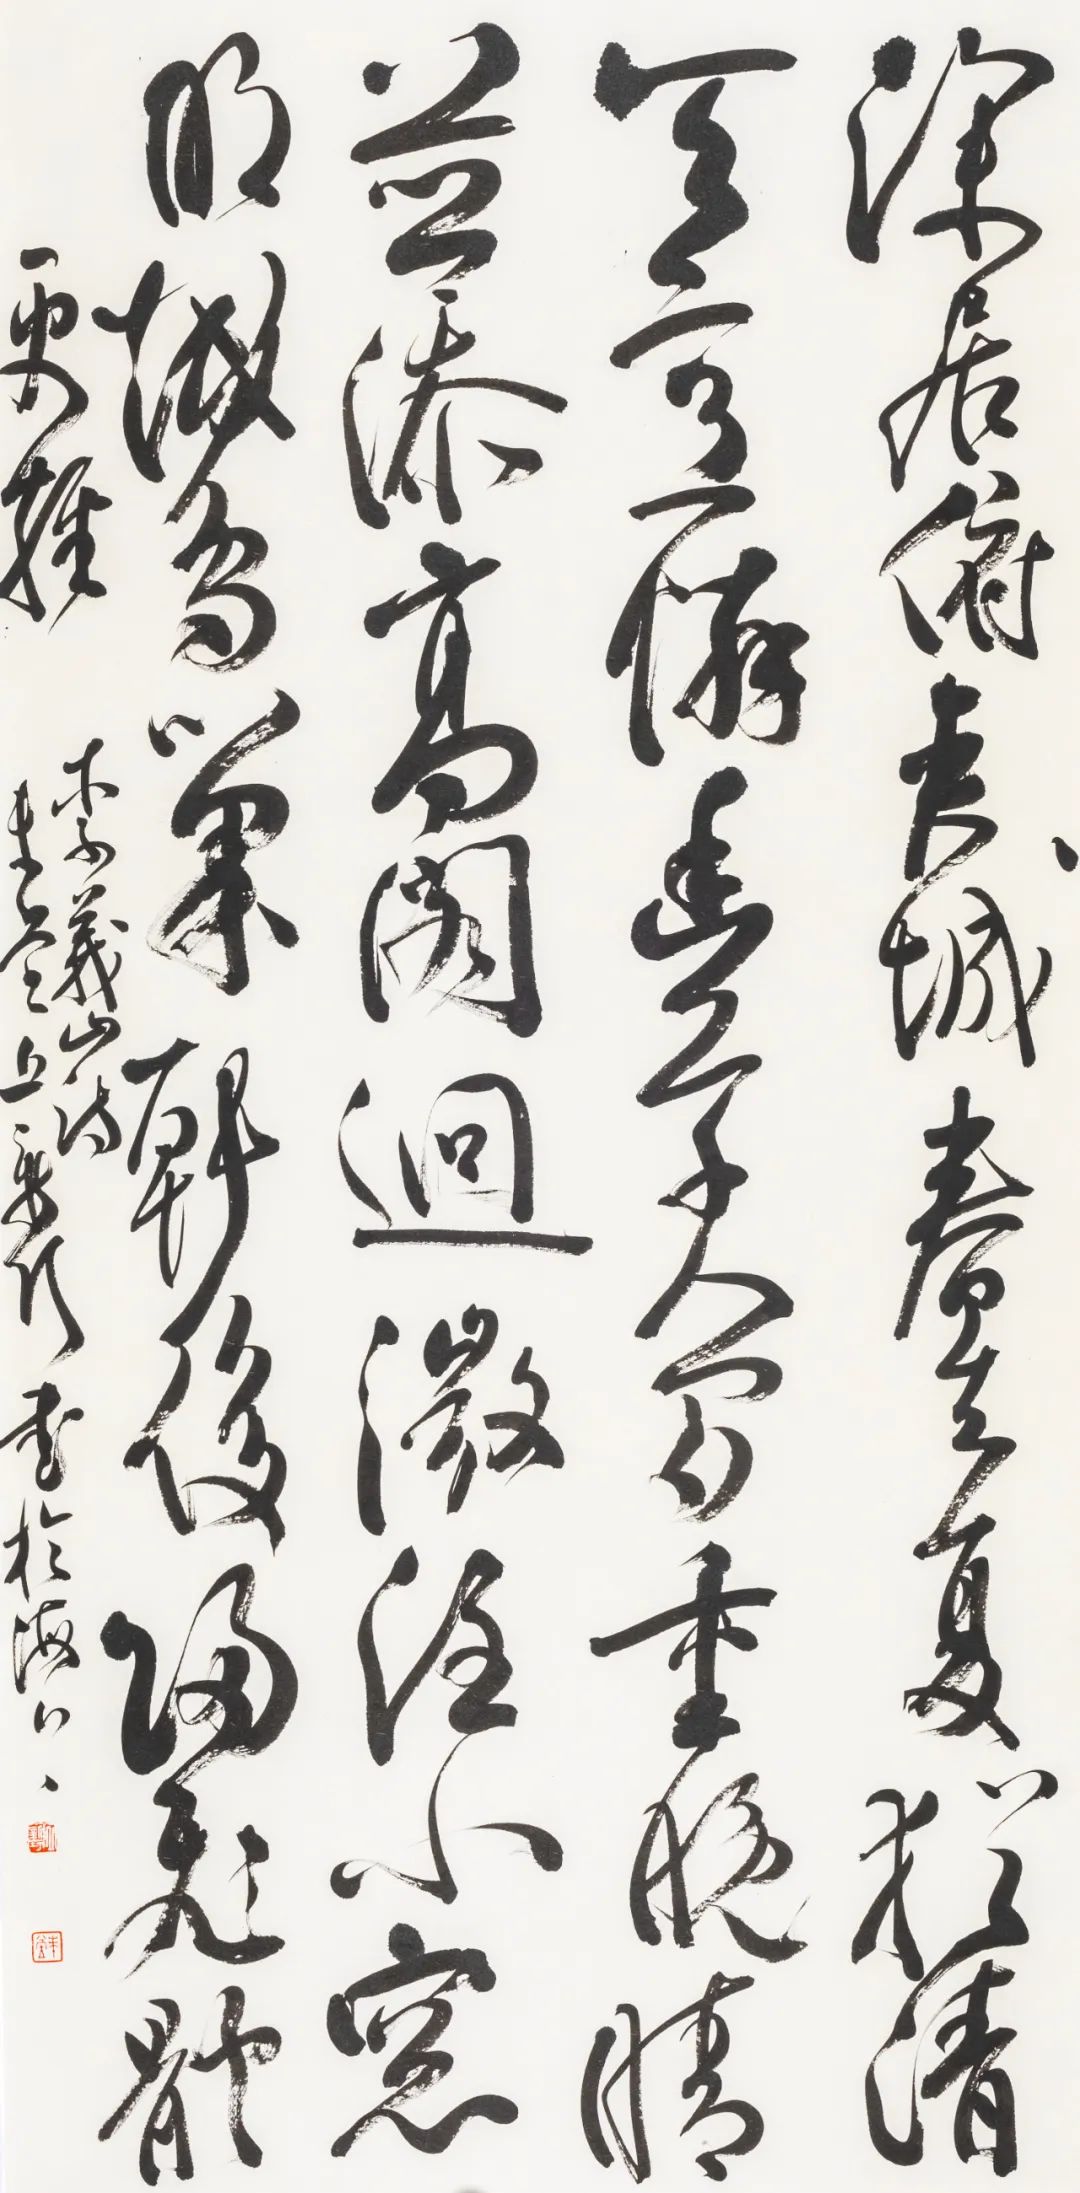 深居俯夾城春去夏猶清
天意憐幽草人間重晚晴
並添高閣迥微注小窓
明越鳥巢乾後歸飛體
更輕
李義山詩
書於海口